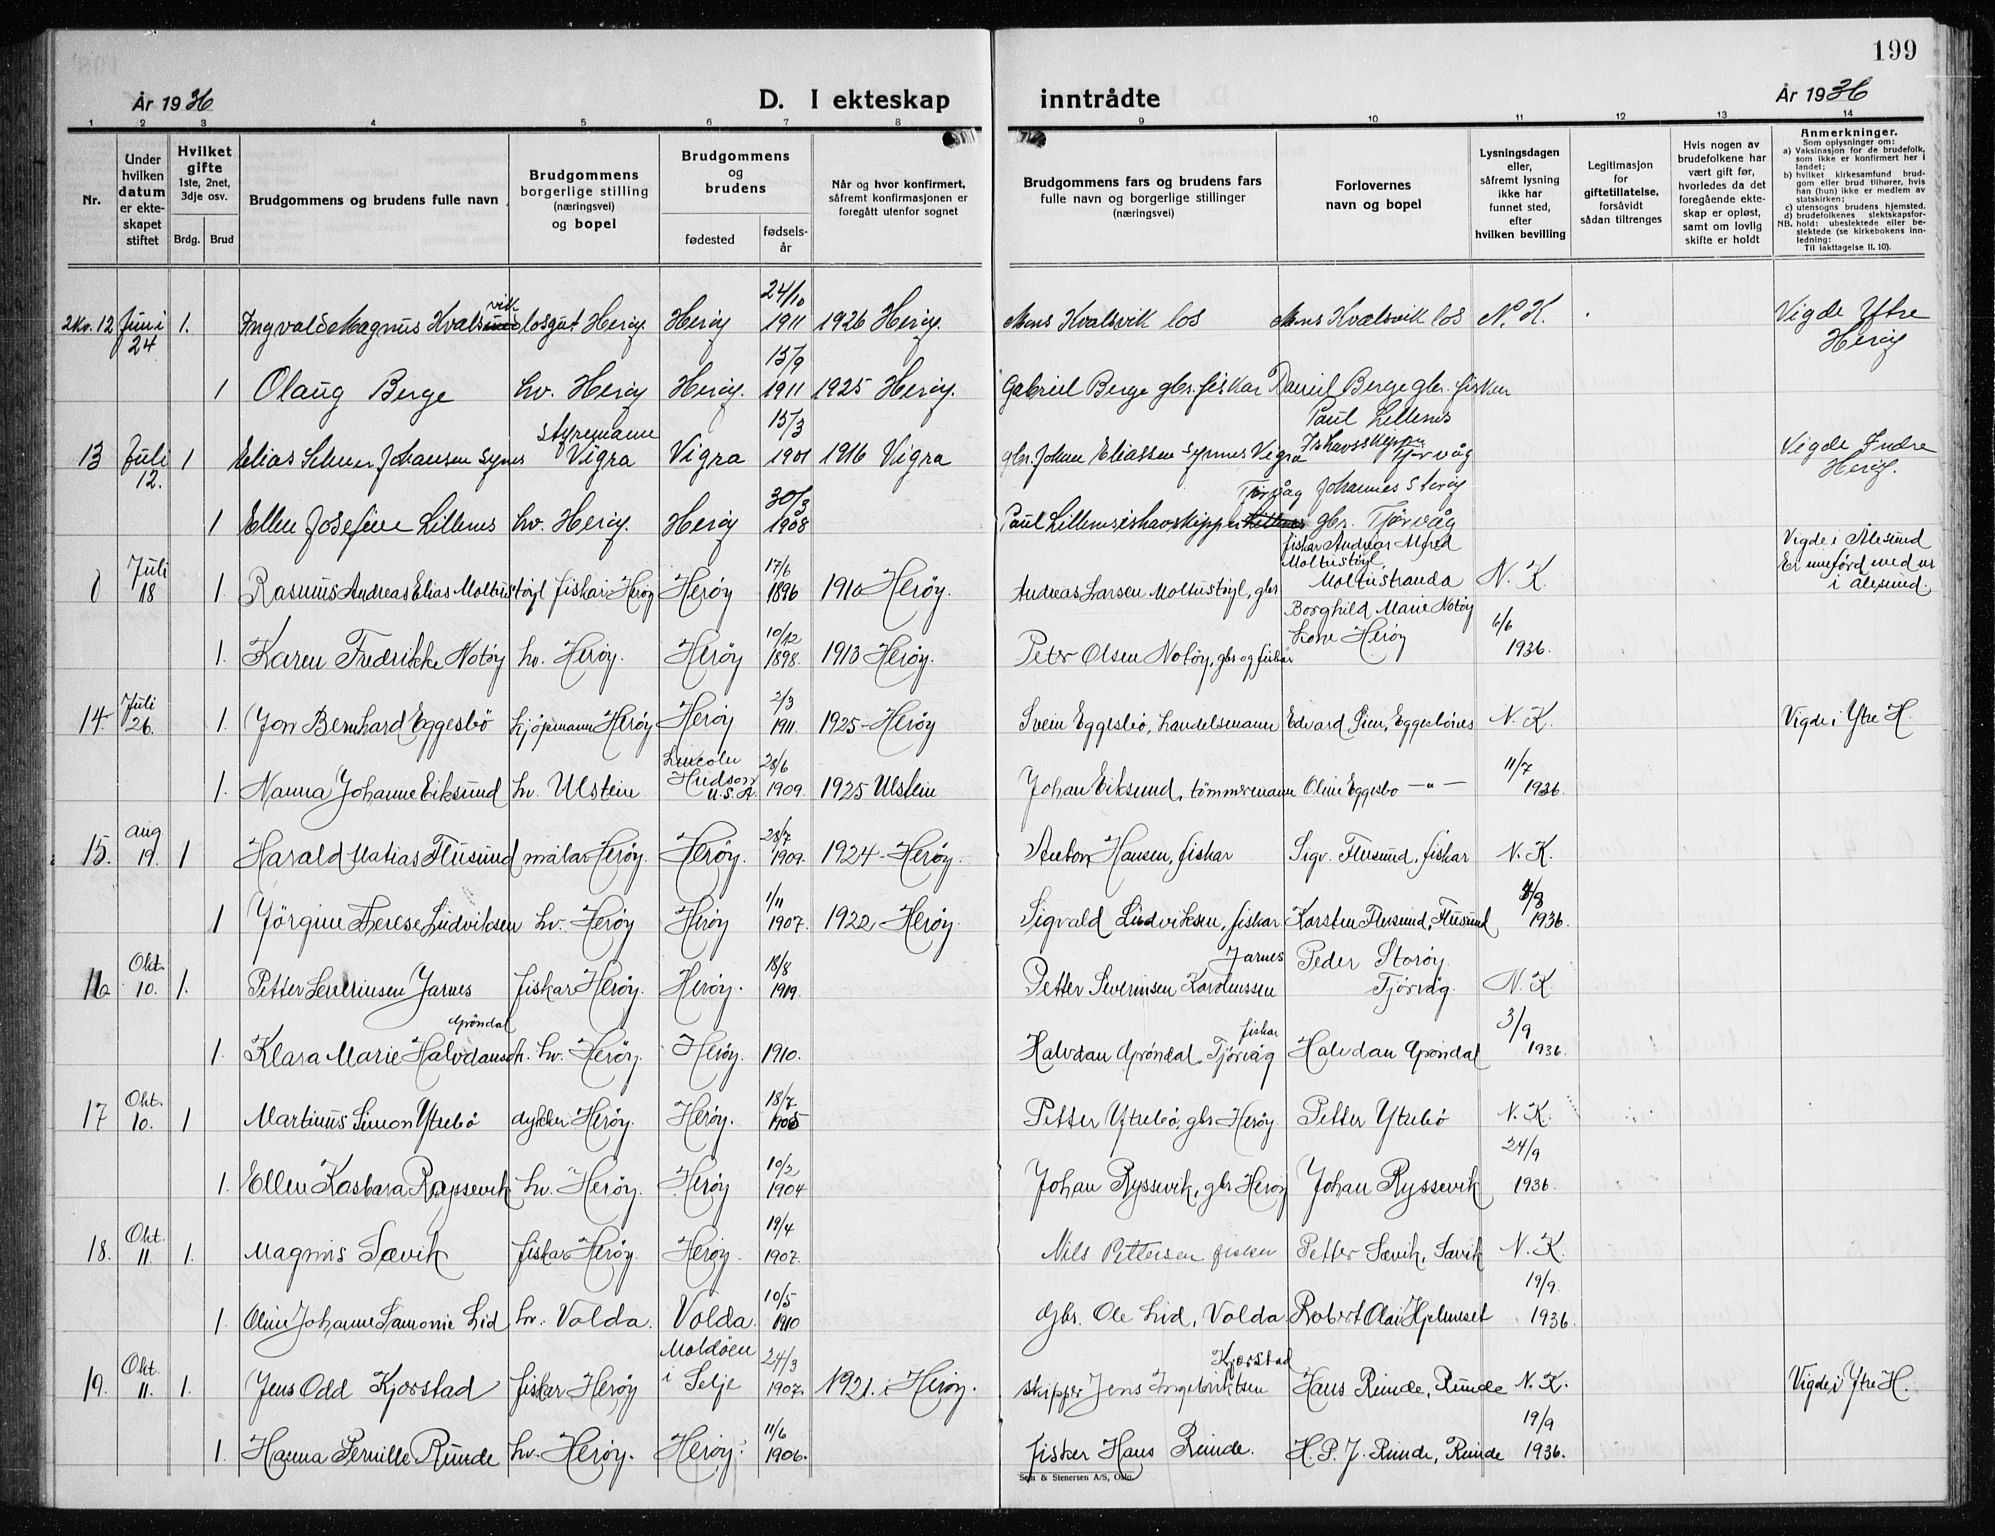 199
År 1936
D. I ekteskap inntrådte
År 1936
1 2 3 4 5 6 7 8 9 10 11 12 13 14
Nr.
Under hvilken datum er ekte- skapet stiftet
Hvilket gifte 1ste, 2net, 3dje osv.
Brdg. Brud
Brudgommens og brudens fulle navn
Brudgommens borgerlige stilling (næringsvei) og bopel
Brudgommens og brudens
fødested
fødsels- år
Når og hvor konfirmert, såfremt konfirmasjonen er foregått utenfor sognet
Brudgommens fars og brudens fars fulle navn og borgerlige stillinger (næringsvei)
Forlovernes navn og bopel
Lysningsdagen eller, såfremt lysning ikke har funnet sted, efter hvilken bevilling
Legitimasjon for giftetillatelse, forsåvidt sådan tiltrenges
Hvis nogen av brudefolkene har vært gift før, hvorledes da det foregående ekte- skap er opløst, samt om lovlig skifte er holdt
Anmerkninger.
Som oplysninger om:
a) Vaksinasjon for de brudefolk, som ikke er konfirmert her i landet;
b) hvilket kirkesamfund brud- gom eller brud tilhører, hvis han (hun) ikke er medlem av statskirken;
c) utensogns brudens hjemsted.
d) brudefolkenes slektskapsfor- hold: ubeslektede eller be- slektede (se kirkebokens inn- ledning:
NB.
Til iakttagelse II. 10).
2kv. 12 Juni 24 1. Ingvald Magnus Kvalsvik losgut Herøy. Herøy 24/10 1911 1926 Herøy. Mons Kvalsvik los Mons Kvalsvik los N. K. Vigde Ytre Herøy
1 Olaug Berge hv. Herøy Herøy. 15/9 1911 1925 Herøy. Gabriel Berge gbr. fiskar Daniel Berge gbr. fiskar
13 Juli 12. 1 Elias Johansen Synes Styremann Vigra Vigra 15/3 1901 1916 Vigra gbr. Johan Eliassen Synnes Vigra Paul Lillenes Ishavsskipper Tjørvåg Vigde Indre Herøy.
1 Ellen Josefine Lillenes hv. Herøy. Herøy 30/3 1908 Paul Lillenes ishavskipper Tjørvåg Johannes Storøy gbr. Tjørvåg
0 Juli 18 1. Rasmus Andreas Elias Moltustøyl fiskar Herøy Herøy 17/6 1896 1910 Herøy. Andreas Larsen Moltustøyl, gbr fiskar Andreas Alfred Moltustøyl, Moltustranda N. K. Vigde i Ålesund Er innførd med nr i Ålesund.
1. Karen Fredrikke Notøy hv. Herøy. Herøy 10/12 1898. 1913 Herøy. Peter Olsen Notøy, gbr og fiskar Borghild Marie Notøy kone Herøy 6/6 1936.
14. Juli 26. 1. Jon Bernhard Eggesbö kjøpmann Herøy Herøy 2/3 1911. 1925 - Herøy Svein Eggesbö, handelsmann Edvard Eggesbönes N. K. Vigde i Ytre H.
1. Nanna Johanne Eiksund hv. Ulstein Lincoln Hudson U.S.A 28/6 1909. 1925 Ulstein Johan Eiksund, tömmermann Oline Eggesbo — " — 11/7 1936.
15. aug 19. 1 Harald Matias Flusund målar Herøy. Herøy. 28/7 1909. 1924 - Herøy. Anton Hansen, fiskar Sigv. Flusund, fiskar N. K.
1 Jörgine Terese Ludviksen hv. Herøy Herøy 1/11 1907. 1922 - Herøy. Sigvald Ludviksen, fiskar Karsten Flusund, Flusund 4/8 1936.
16 Okt. 10. 1. Petter Severinsen Jarnes fiskar Herøy. Herøy. 18/8 1919. Petter Severinsen Karolinssen Jarnes Peder Storøy. Tjörvåg. N. K.
1. Klara Marie Halvdansdt. Gröndal hv. Herøy. Herøy. 1910. Halvdan Gröndal, Tjörvåg fiskar Halvdan Gröndal 3/9 1936.
17 Okt. 10. 1 Martinus Simon Ytrebö dykker Herøy. Herøy. 18/7 1905 Petter Ytrebö, gbr Herøy. Petter Ytrebö N. K.
1. Ellen Kasbara Ryssevik hv. Herøy. Herøy 10/2 1904 Johan Ryssevik, gbr Herøy Johan Ryssevik 24/9 1936.
18. Okt. 11. 1. Magnus Sævik fiskar Herøy. Herøy. 19/4 1907. Nils Pettersen fisker Petter Sævik, Sævik N. K.
1. Oline Johanne Samonie Lid hv. Volda. Volda. 10/5 1910 Gbr. Ole Lid, Volda Robert Olai Hjelmeset 19/9. 1936.
19. Okt. 11. 1. Jens Odd Kjørstad fisker Herøy Moldöen i Selje 24/3 1907. 1921. i Herøy. skipper Jens Ingebriktsen Kjørstad Hans Runde, Runde N. K. Vigde i Ytre H.
1. Hanna Pernille Runde hv. Herøy. Herøy. 11/6 1906. fisker Hans Runde. H. P. J. Runde, Runde 19/9 1936.
Sem & Stenersen A/S, Oslo.